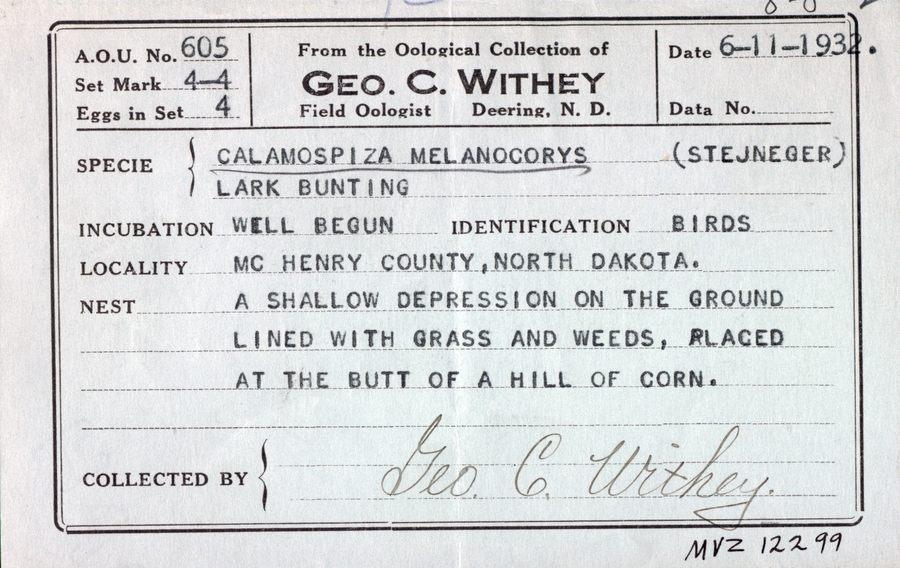 A.O.U. No. 605
Set Mark 4-4
Eggs in Set 4
From the Oological Collection of
GEO. C. WITHEY
Field Oologist Deering, N. D.
Date 6-11-1932.
Data No.
SPECIE CALAMOSPIZA MELANOCORYS (STEJNEGER)
LARK BUNTING
INCUBATION WELL BEGUN IDENTIFICATION BIRDS
LOCALITY MC HENRY COUNTY,NORTH DAKOTA.
NEST A SHALLOW DEPRESSION ON THE GROUND
LINED WITH GRASS AND WEEDS, PLACED
AT THE BUTT OF A HILL OF CORN.
COLLECTED BY Geo. C. Withey.
MVZ 12299